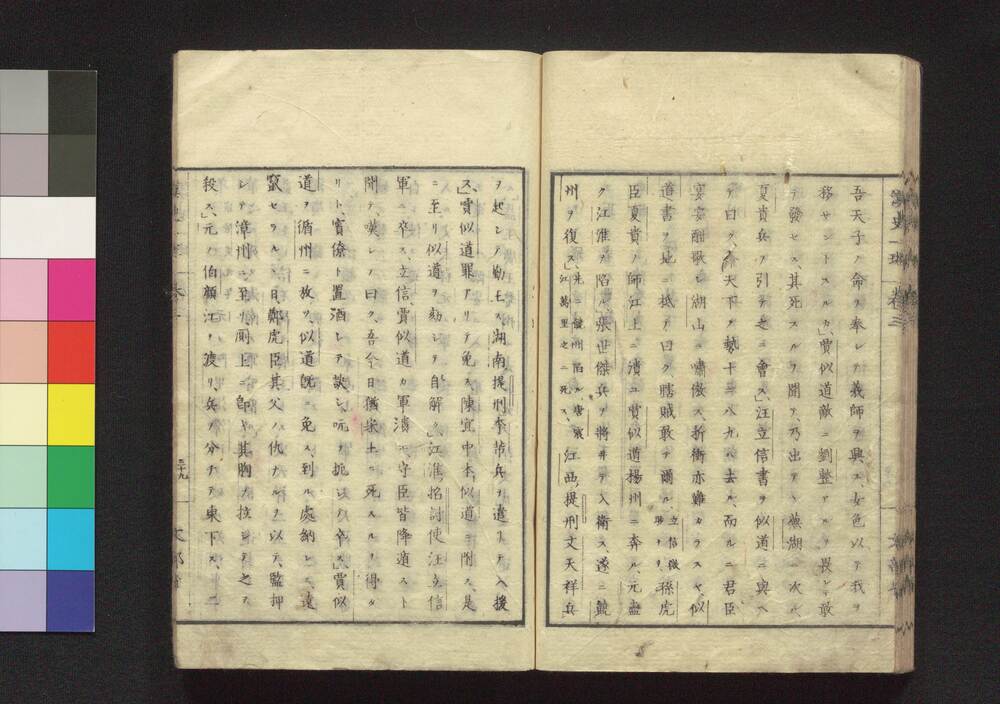 吾天子ノ命ヲ奉シテ義師ヲ興ス、女色以テ我ヲ
移サントスルカ」賈似道敵ニ劉整アルヲ畏レ敢
テ發セス、其死スルヲ聞テ乃出テヽ蕪湖ニ次ル、
夏貴兵ヲ引テ之ニ會ス」汪立信書ヲ似道ニ與ヘ
テ曰ク、今天下ノ勢十ニ八九ハ去ル、而ルニ君臣
宴安酣歌シ湖山ニ嘯傲ス、折衝亦難カラスヤ似
道書ヲ地ニ抵テ曰ク瞎賊敢テ爾ル 立信微眇ナリ 孫虎
臣夏貴ノ師江上ニ潰ユ賈似道揚州ニ奔ル、元盡
ク江淮ヲ陷ル、張世傑兵ヲ將井テ入衛ス、遂ニ饒
州ヲ復ス」先ニ饒州陷ル唐震江萬里之ニ死ス、江西提刑文天祥兵
ヲ起シテ勤王ス湖南提刑李芾兵ヲ遣リテ入援
ス」賈似道罪アリテ免ス、陳宜中本似道ニ附ス、是
ニ至リ似道ヲ劾シテ自解ク、江淮招討使汪立信
軍ニ卒ス、立信、賈似道カ軍潰エ守臣皆降遁スト
聞テ、嘆シテ曰ク、吾今日猶宋土ニ死スルヲ得タ
リト、賓僚ト置酒シテ訣シ、吭ヲ扼シテ卒ス」賈似
道ヲ循州ニ放ツ、似道旣ニ免ス、到ル處納レス、遠
竄セラル、ノ日、鄭虎臣其父ノ仇ナルヲ以テ、監押
シテ漳州ニ至リ、厠上ニ卽キ其胸ヲ拉シテ之ヲ
殺ス」、元ノ伯顔江ヲ渡リ、兵ヲ分チテ東下ス、二
三十九